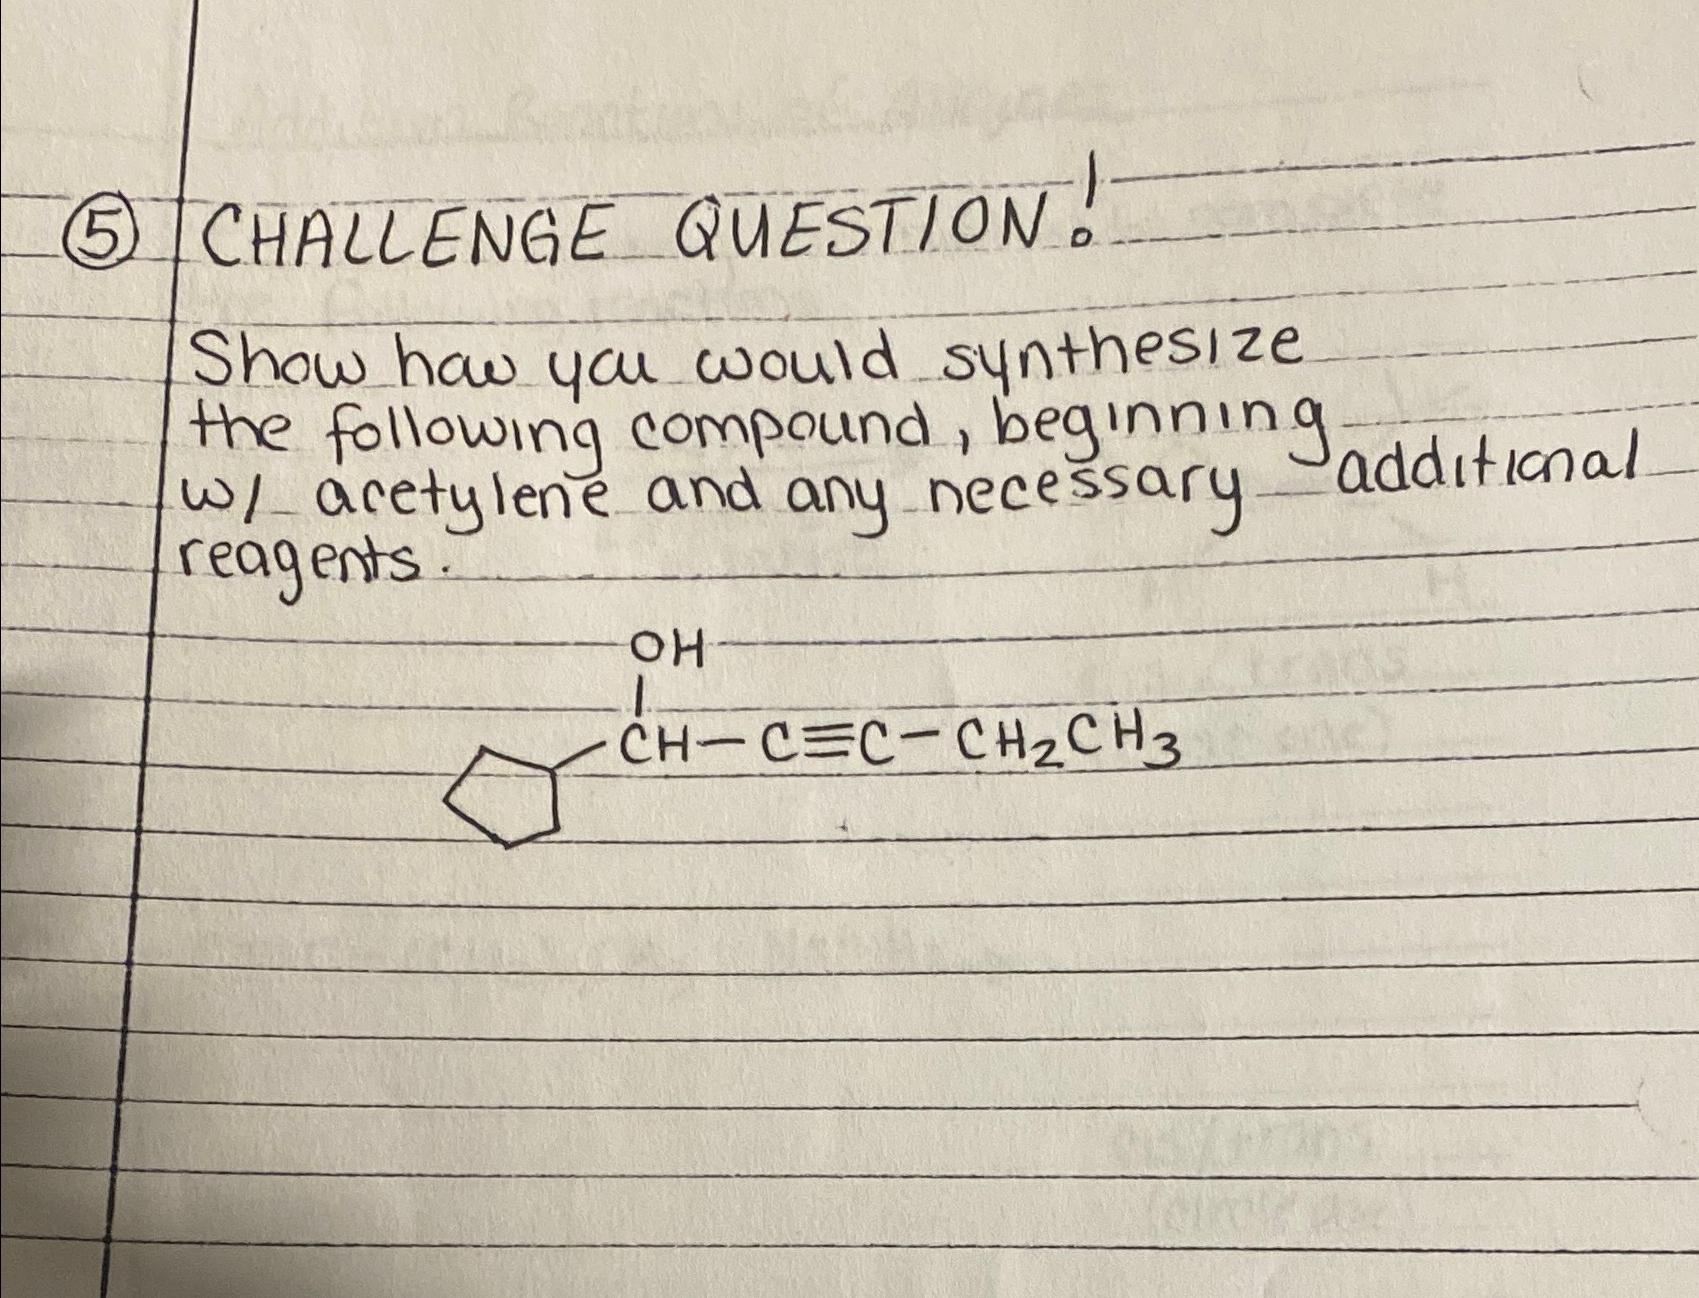 ⑤ CHALLENGE QUESTION!
Show how you would synthesize
the following compound, beginning
w/ acetylene and any necessary additional
reagents.
OH
CH-C≡C-CH₂CH₃